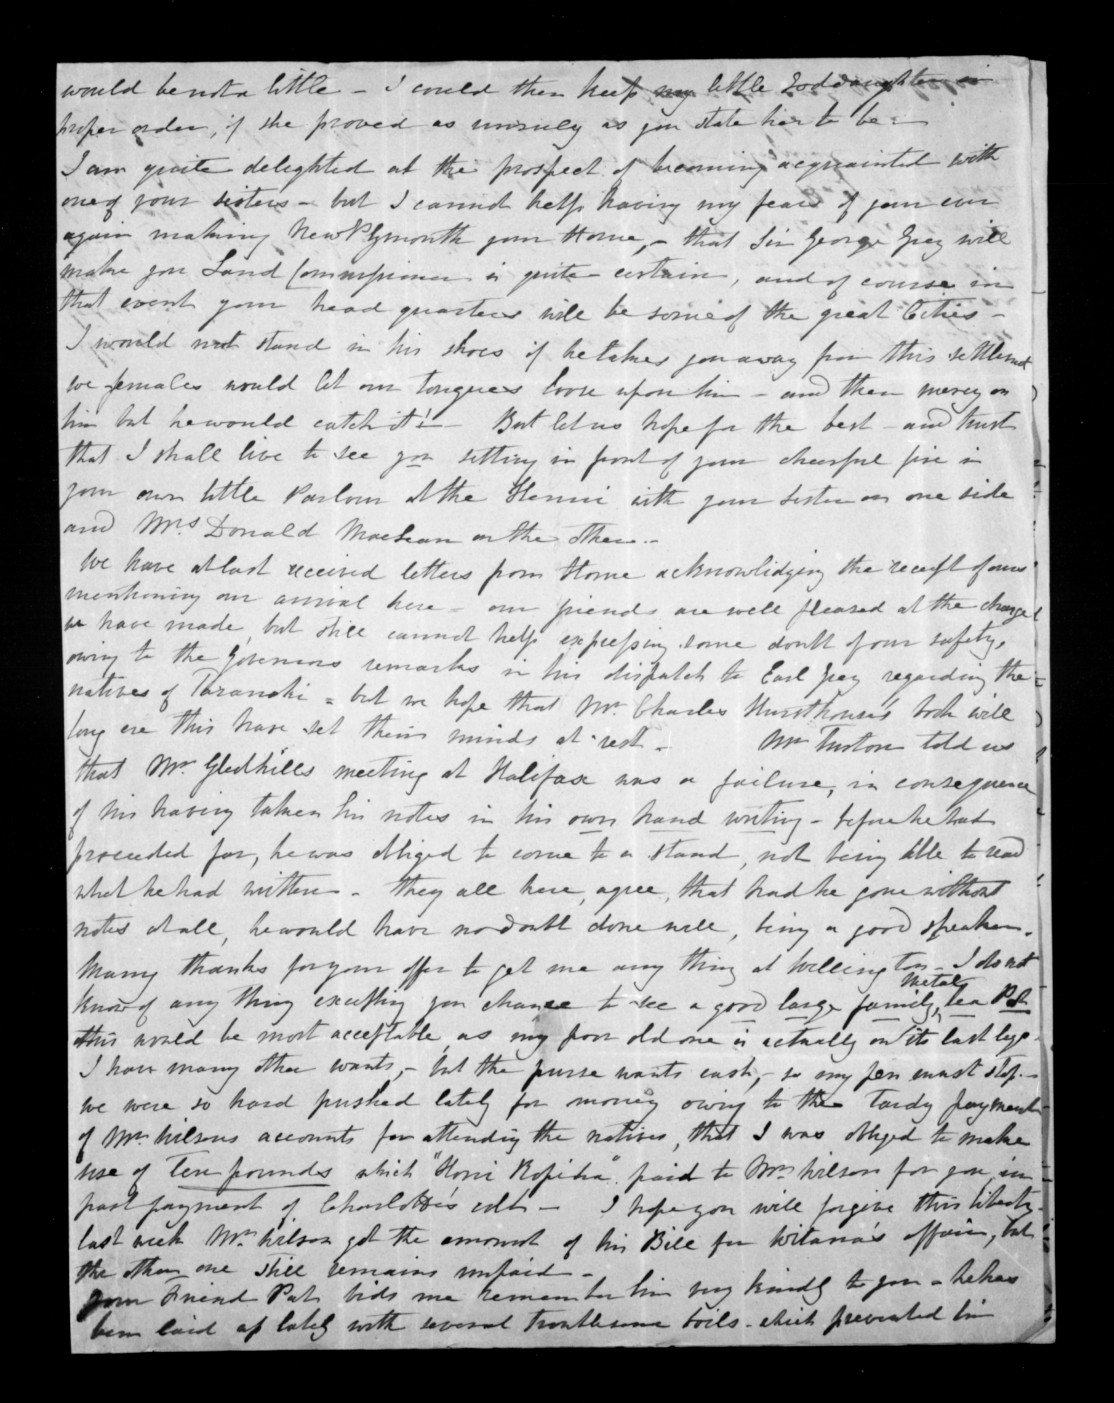 would be not a little - I could then keep my little Goddaughter in
proper order, if she proved as unruly as you state her to be -
I am quite delighted at the prospect of becoming acquainted with
one of your sisters - but I cannot help having my fears of your ever
again making New Plymouth your Home, - that Sir George Grey will
make you Land Commissioner is quite certain, and of course in
that event your head quarters will be some of the great Cities -
I would not stand in his shoes if he takes you away from this settlement
we females would let our tongues loose upon him - and then mercy on
him but he would catch it! - But let us hope for the best - and trust
that I shall live to see you sitting in front of your cheerful fire in
your own little Parlour at the Henui with your Sister on one side
and Mrs Donald MacLean on the other. -
We have at last received letters from Home acknowledging the receipt of ours
mentioning our arrival here - our friends are well pleased at the change
we have made, but still cannot help expressing some doubt of our safety,
owing to the Governors remarks in his dispatch to Earl Grey regarding the
natives of Taranaki - but we hope that Mr. Charles Hursthouse's book will
long ere this have set their minds at rest - Mr Turton told us
that Mr. Gledhills meeting at Halifax was a failure, in consequence
of his having taken his notes in his own hand writing - before he had
proceeded far, he was obliged to come to a stand, not being able to read
what he had written - they all here, agree, that had he gone without
notes at all, he would have no doubt done well, being a good speaker.
Many thanks for your offer to get me any thing at Wellington - I do not
know of any thing excepting you chance to see a good large family, Metal tea Pot
this would be most acceptable as my poor old one is actually on its last legs -
I have many other wants, - but the purse wants cash, - so my pen must stop. -
we were so hard pushed lately for money owing to the tardy payment
of Mr. Wilsons accounts for attending the natives, that I was obliged to make
use of Ten pounds which "Honi Ropiha" paid to Mr. Wilson for you in
part payment of Charlotte's colt - I hope you will forgive this liberty -
last week Mr. Wilson got the amount of his Bill for Witana's affair, but
the other one still remains unpaid -
your Friend Pat bids me remember him very kindly to you - he has
been laid up lately with several troublesome boils - which prevented him